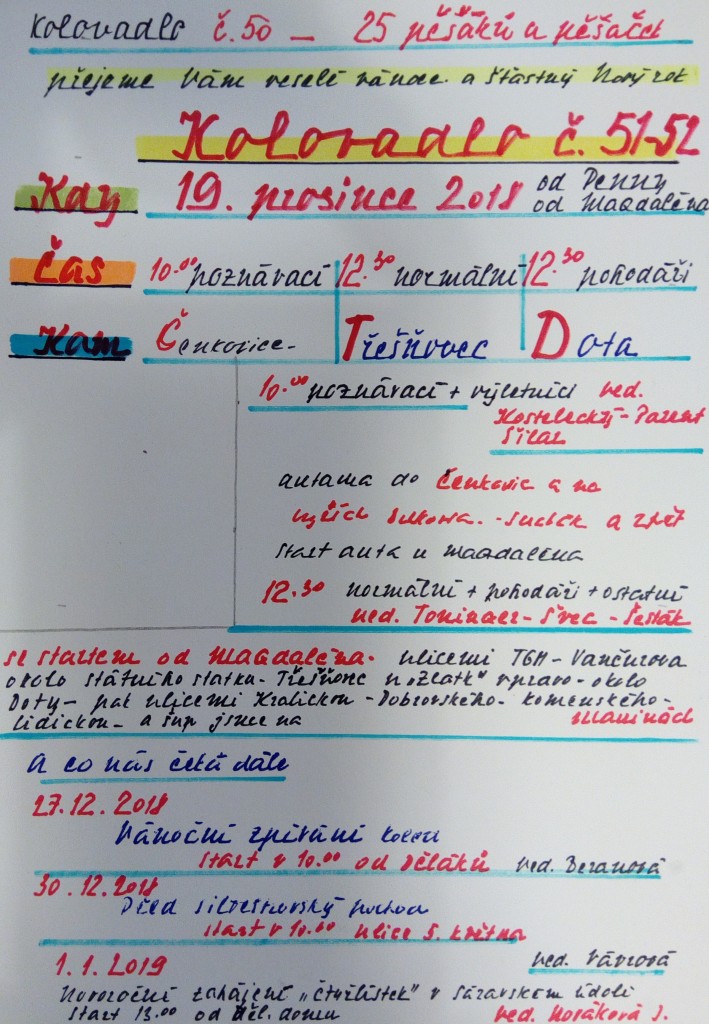 Kolovadlo č.50 – 25 pěšáků a pěšaček
přejeme Vám veselé vánoce a šťastný Nový rok
Kolovadlo č. 51-52
Kdy 19. prosince 2018 od Penny
od Magdaléna
Čas 10.00 poznávací 12.30 normální 12.30 pohodáři
Kam Čenkovice- Třešňovec Dota
10.00 poznávací + výletníci ved.
Kostelecký - Parent
autama do Čenkovic a na
a zpět
start auta u Magdaléna
12.30 normální + pohodáři + ostatní
ved. Tomincer - Švec - Šesták
se startem od Magdaléna. ulicemi TGM - Vančurova
okolo státního statku - Třešňovec u "Zlatk" vpravo - okolo
Doty - pak ulicemi Kralickou - Dobrovského - Komenského -
Lidickou - a šup jsme na Maninách
A co nás čeká dále
27.12. 2018
Vánoční zpívání koled
start v 10.00 od Děláků ved. Beranová
30.12.2018
Před silvestrovský pochod
start v 10.00 ulice 5. května
1.1.2019 ved. Vávrová
Novoroční zahájení „čtyřlístek" v Sázavském údolí
start 13.00 od Děl. domu ved. Nováková J.